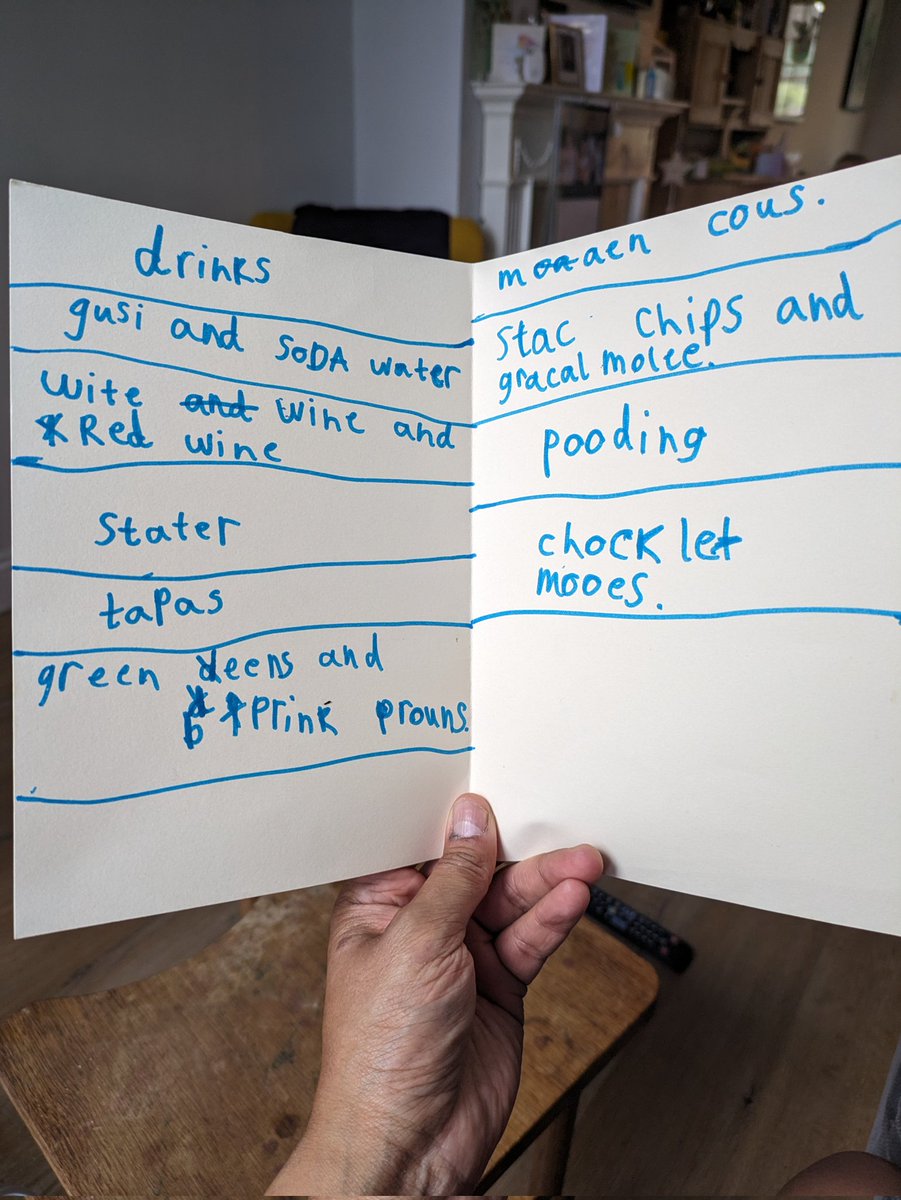 drinks
gusi and SODA water
wite and wine and
Red wine
Stater
tapas
green beens and
prink prouns.
moaaen cous.
stac chips and
gracal molee.
pooding
chocklet
mooes.